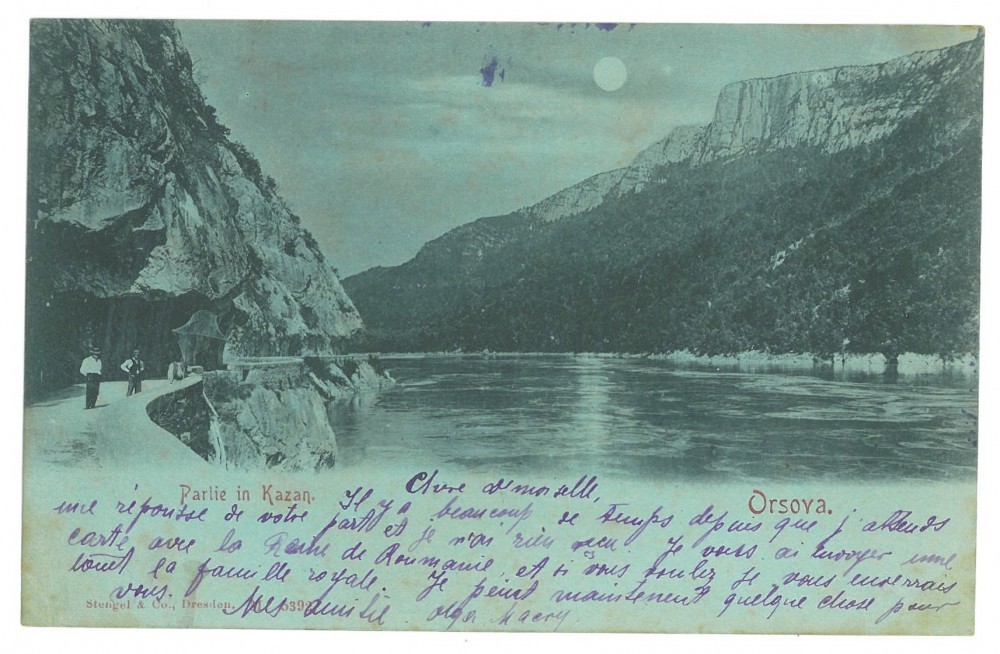 Partie in Kazan.
Orsova.
Chere demoiselle,
Il y a beaucoup de temps depuis que j'attends
une réponse de votre part et je n'ai rien reçu. Je vous ai envoyer une
carte avec la Reine de Roumanie, et si vous voulez je vous enverrais
tout la famille royale. Je peint maintenent quelque chose pour
vous. Mes amitié Olga
Stengel & Co., Dresden.